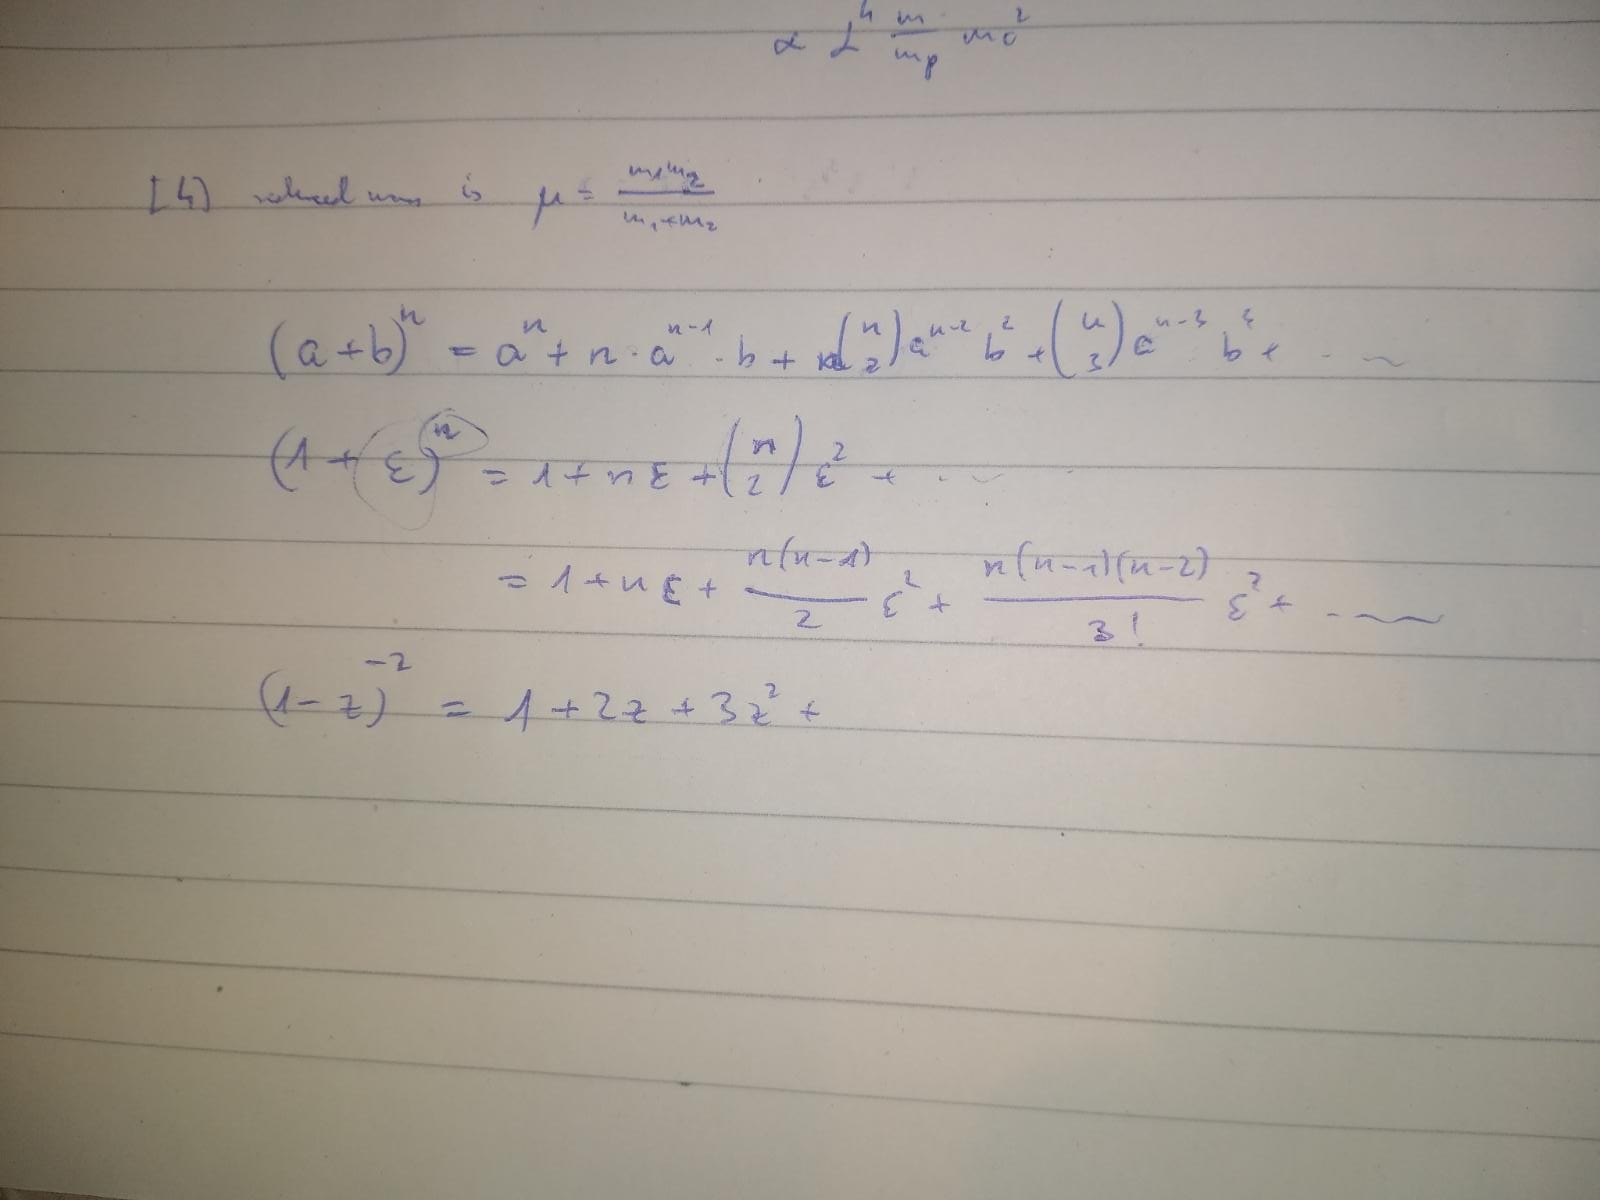 ∝ α⁴ m/mp mc²
[4] reduced mass is μ = m₁m₂/(m₁+m₂)
(a+b)ⁿ = aⁿ + n·aⁿ⁻¹·b + (n 2) aⁿ⁻² b² + (n 3) aⁿ⁻³ b³ + ...
(1+ε)ⁿ = 1 + nε + (n 2) ε² + ...
= 1 + nε + n(n-1)/2 ε² + n(n-1)(n-2)/3! ε² + ....
(1-z)⁻² = 1 + 2z + 3z² +